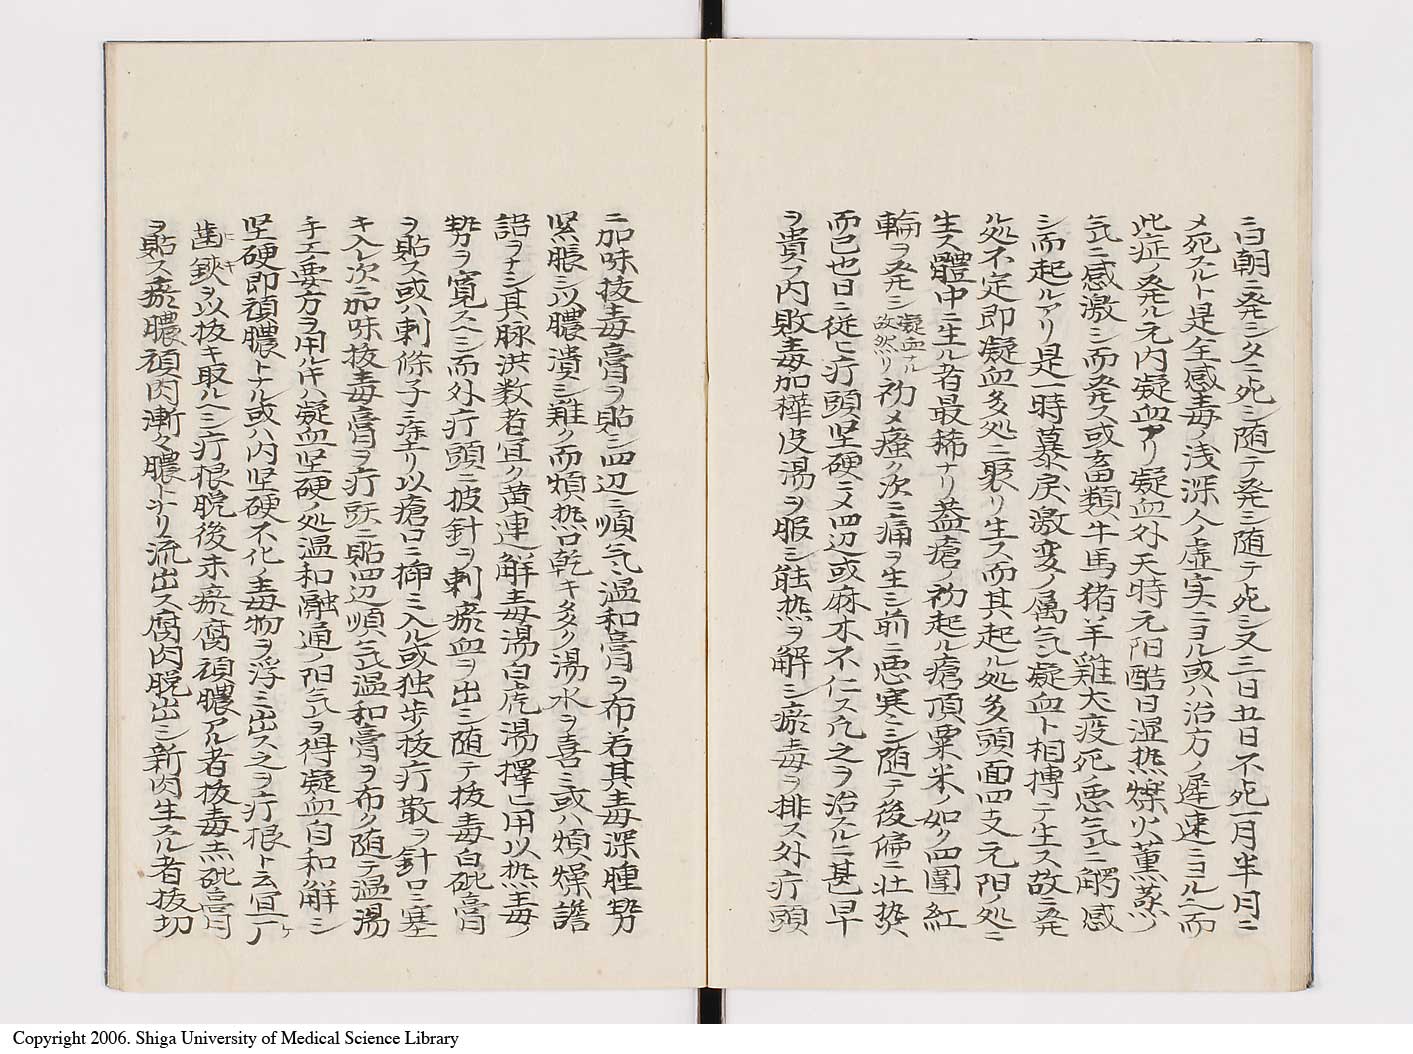 ニ曰朝ニ発シタニ死シ随テ発シ随テ死シ又三日五日不死一月半月ニ
メ死スルト是全感毒ノ浅深人ノ虚実ニヨル或ハ治方ノ遅速ニヨルヘシ而
此症ノ発ル元内凝血アリ凝血外天時元陽酷日湿熱燥火薫蒸ノ
気ニ感激シ而発ス或畜類牛馬猪羊雞大疫死ノ悪気ニ觸感
シ而起ルアリ是一時暴戻激変ノ属気凝血ト相搏テ生ス故ニ発
ル処不定即凝血多処ニ聚リ生ス而其起ル処多頭面四支元陽ノ処ニ
生ス體中ニ生ル者最稀ナリ蓋瘡ノ初起ル瘡頂粟米ノ如ク四圍紅
輪ヲ発シ凝血ナル故然リ初メ癢ク次ニ痛ヲ生シ前ニ悪寒シ随テ後偏ニ壮熱
而已也日ニ従ヒ疔頭坚硬ニメ四辺或麻木不仁ス凡之ヲ治スルニ甚早
ヲ貴フ内敗毒加樺皮湯ヲ服シ能熱ヲ解シ瘀毒ヲ排ス外疔頭
ニ加味抜毒膏ヲ貼シ四辺ニ順気温和膏ヲ布ク若其毒深腫勢
緊脹シ以膿潰シ難ク而煩熱口乾キ多ク湯水ヲ喜ミ或ハ煩燥譫
語ヲナシ其脉洪数者宜ク黄連解毒湯白虎湯擇ヒ用以熱毒ノ
勢ヲ寛スヘシ而外疔頭ニ披針ヲ刺瘀血ヲ出シ随テ抜毒白砒膏
ヲ貼ス或ハ刺條子ニ塗リ以瘡口ニ挿ミ入ル或独歩抜疔散ヲ針口ニ塞
キ入レ次ニ加味抜毒膏ヲ疔頭ニ貼四辺順気温和膏ヲ布ク随テ温湯
手工ノ要方ヲ用ルキハ凝血坚硬ノ処温和融通ノ阳気ヲ得凝血自和解シ
坚硬即頑膿トナル或ハ内坚硬不化ノ毒物ヲ浮ミ出ス之ヲ疔根ト云宜ク
歯鋏ヲ以抜キ取ルヘシ疔根脱後未瘀腐頑膿アル者抜毒黒砒膏
ヲ貼ス瘀膿頑肉漸々膿トナリ流出ス腐肉脱出シ新肉生スル者抜切